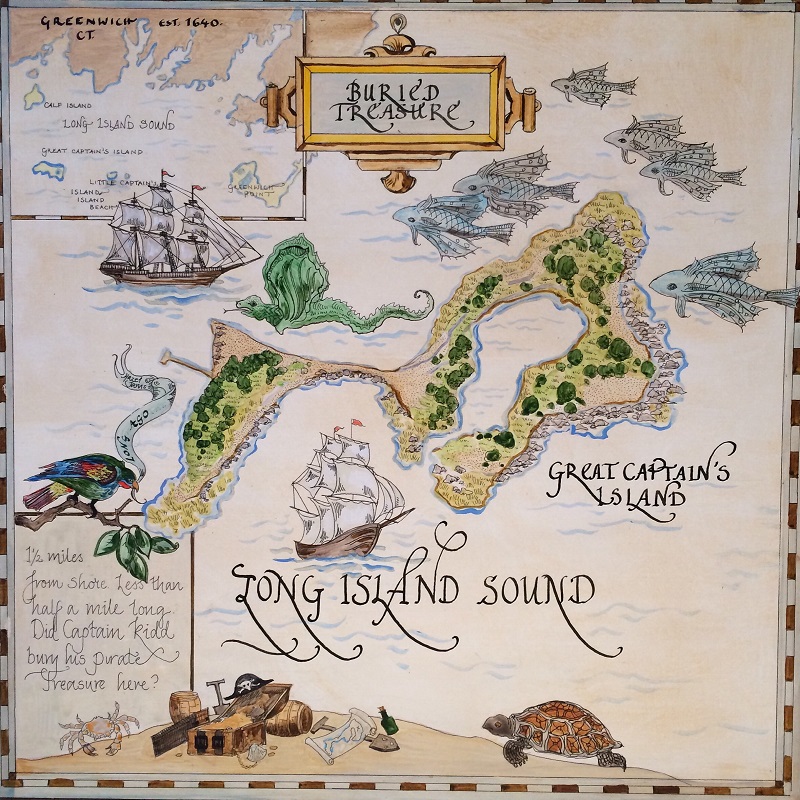 GREENWICH EST. 1640.
CT.
CALF ISLAND
LONG ISLAND SOUND
GREAT CAPTAIN'S ISLAND
LITTLE CAPTAIN'S
ISLAND
ISLAND
BEACH
GREENWICH
POINT
BURIED
TREASURE
LONG AGO
GREAT CAPTAIN'S
ISLAND
LONG ISLAND SOUND
1½ miles
from shore. Less than
half a mile long.
Did Captain Kidd
bury his pirate
Treasure here?